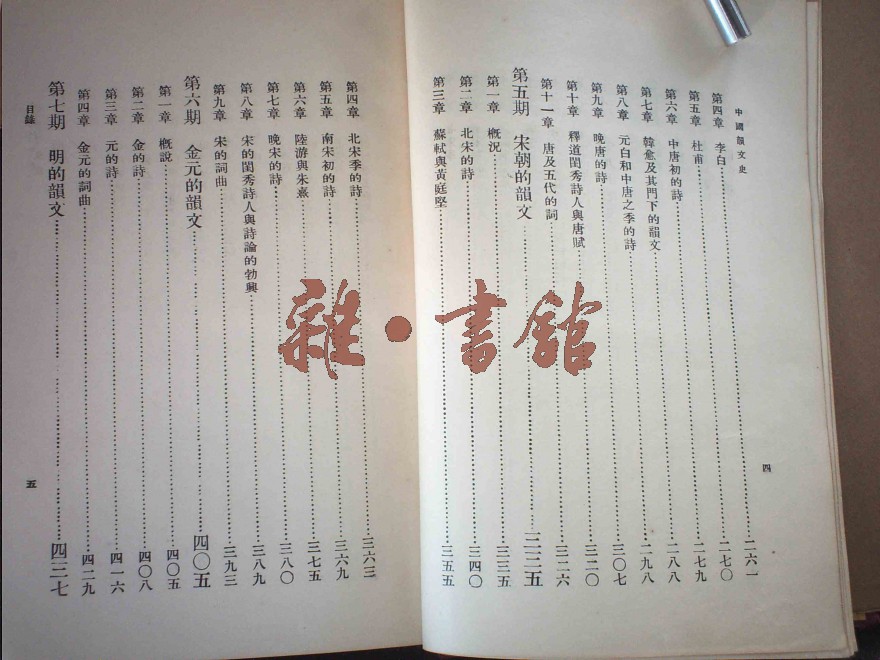 中國韻文史
第四章 李白……二六一
第五章 杜甫……二七〇
第六章 中唐初的詩……二七九
第七章 韓愈及其門下的韻文……二八八
第八章 元白和中唐之季的詩……二九八
第九章 晚唐的詩……三〇七
第十章 釋道閨秀詩人與唐賦……三二〇
第十一章 唐及五代的詞……三二六
第五期 宋朝的韻文……三三五
第一章 概況……三三五
第二章 北宋的詩……三四〇
第三章 蘇軾與黃庭堅……三五五
四
第四章 北宋季的詩……三六三
第五章 南宋初的詩……三六九
第六章 陸游與朱熹……三七五
第七章 晚宋的詩……三八〇
第八章 宋的閨秀詩人與詩論的勃興……三八九
第九章 宋的詞曲……三九三
第六期 金元的韻文……四〇五
第一章 概說……四〇五
第二章 金的詩……四〇八
第三章 元的詩……四一六
第四章 金元的詞曲……四二九
第七期 明的韻文……四三七
目錄
五
雜·書館